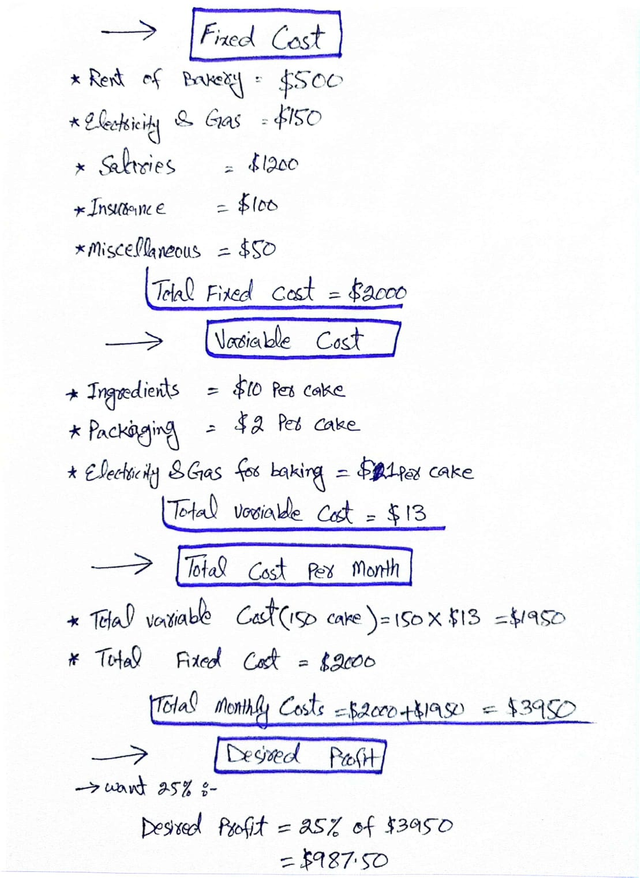 → Fixed Cost
* Rent of Bakery = $500
* Electricity & Gas = $150
* Salaries = $1200
* Insurance = $100
* Miscellaneous = $50
Total Fixed Cost = $2000
→ Variable Cost
* Ingredients = $10 Per cake
* Packaging = $2 Per cake
* Electricity & Gas for baking = $1 Per cake
Total variable Cost = $13
→ Total Cost Per Month
* Total variable Cost (150 cake) = 150 X $13 = $1950
* Total Fixed Cost = $2000
Total Monthly Costs = $2000 + $1950 = $3950
→ Desired Profit
→ want 25% :-
Desired Profit = 25% of $3950
= $987.50